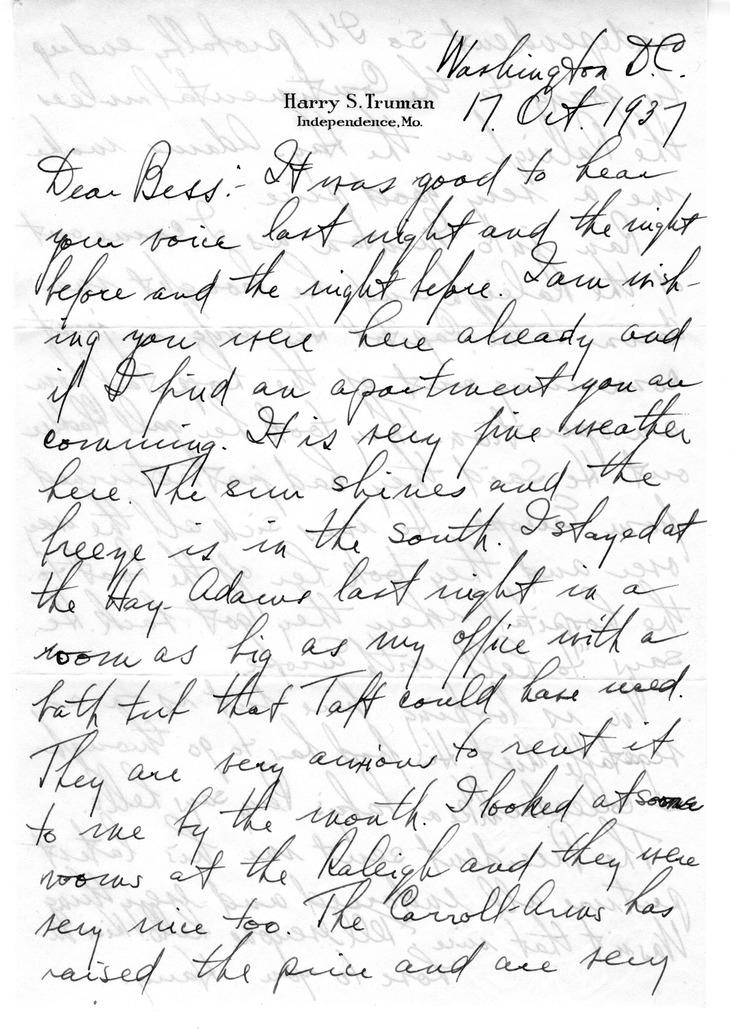 Washington D.C.
Harry S. Truman
Independence, Mo.
17. Oct. 1937
Dear Bess:- It was good to hear
your voice last night and the night
before and the night before. I am wish-
ing you were here already and
if I find an apartment you are
comming. It is very fine weather
here. The sun shines and the
breeze is in the south. I stayed at
the Hay-Adams last night in a
room as big as my office with a
bath tub that Taft could have used.
They are very anxious to rent it
to me by the month. I looked at some
rooms at the Raleigh and they were
very nice too. The Carroll-Arms has
raised the price and are very